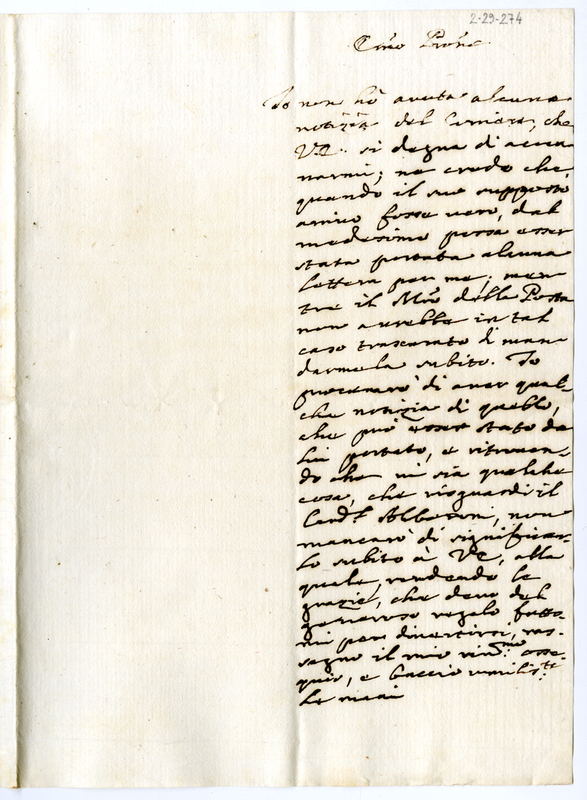 2-29-274
Io non hò avuta alcuna
notizia del Corriere, che
VE. si degna di accen
narmi; ne credo che,
quando il suo supposto
arrivo fosse vero, dal
medesimo possa esser
stata portata alcuna
lettera per me, men
tre il Mro della Posta
non avrebbe in tal
caso trascurato di man
darmela subito. Io
procurarò di aver qual-
che notizia di quello,
che può esser stato da
lui portato, e ritrovan-
do che vi sia qualche
cosa, che risguardi il
Card.l Alberoni, non
mancarò di significar-
lo subito à VE, alla
quale, rendendo le
grazie, che devo del
generoso regalo fatto-
mi per divertirsi, ras-
segno il mio rive.mo osse-
quio, e baccio umilis.te
le mani